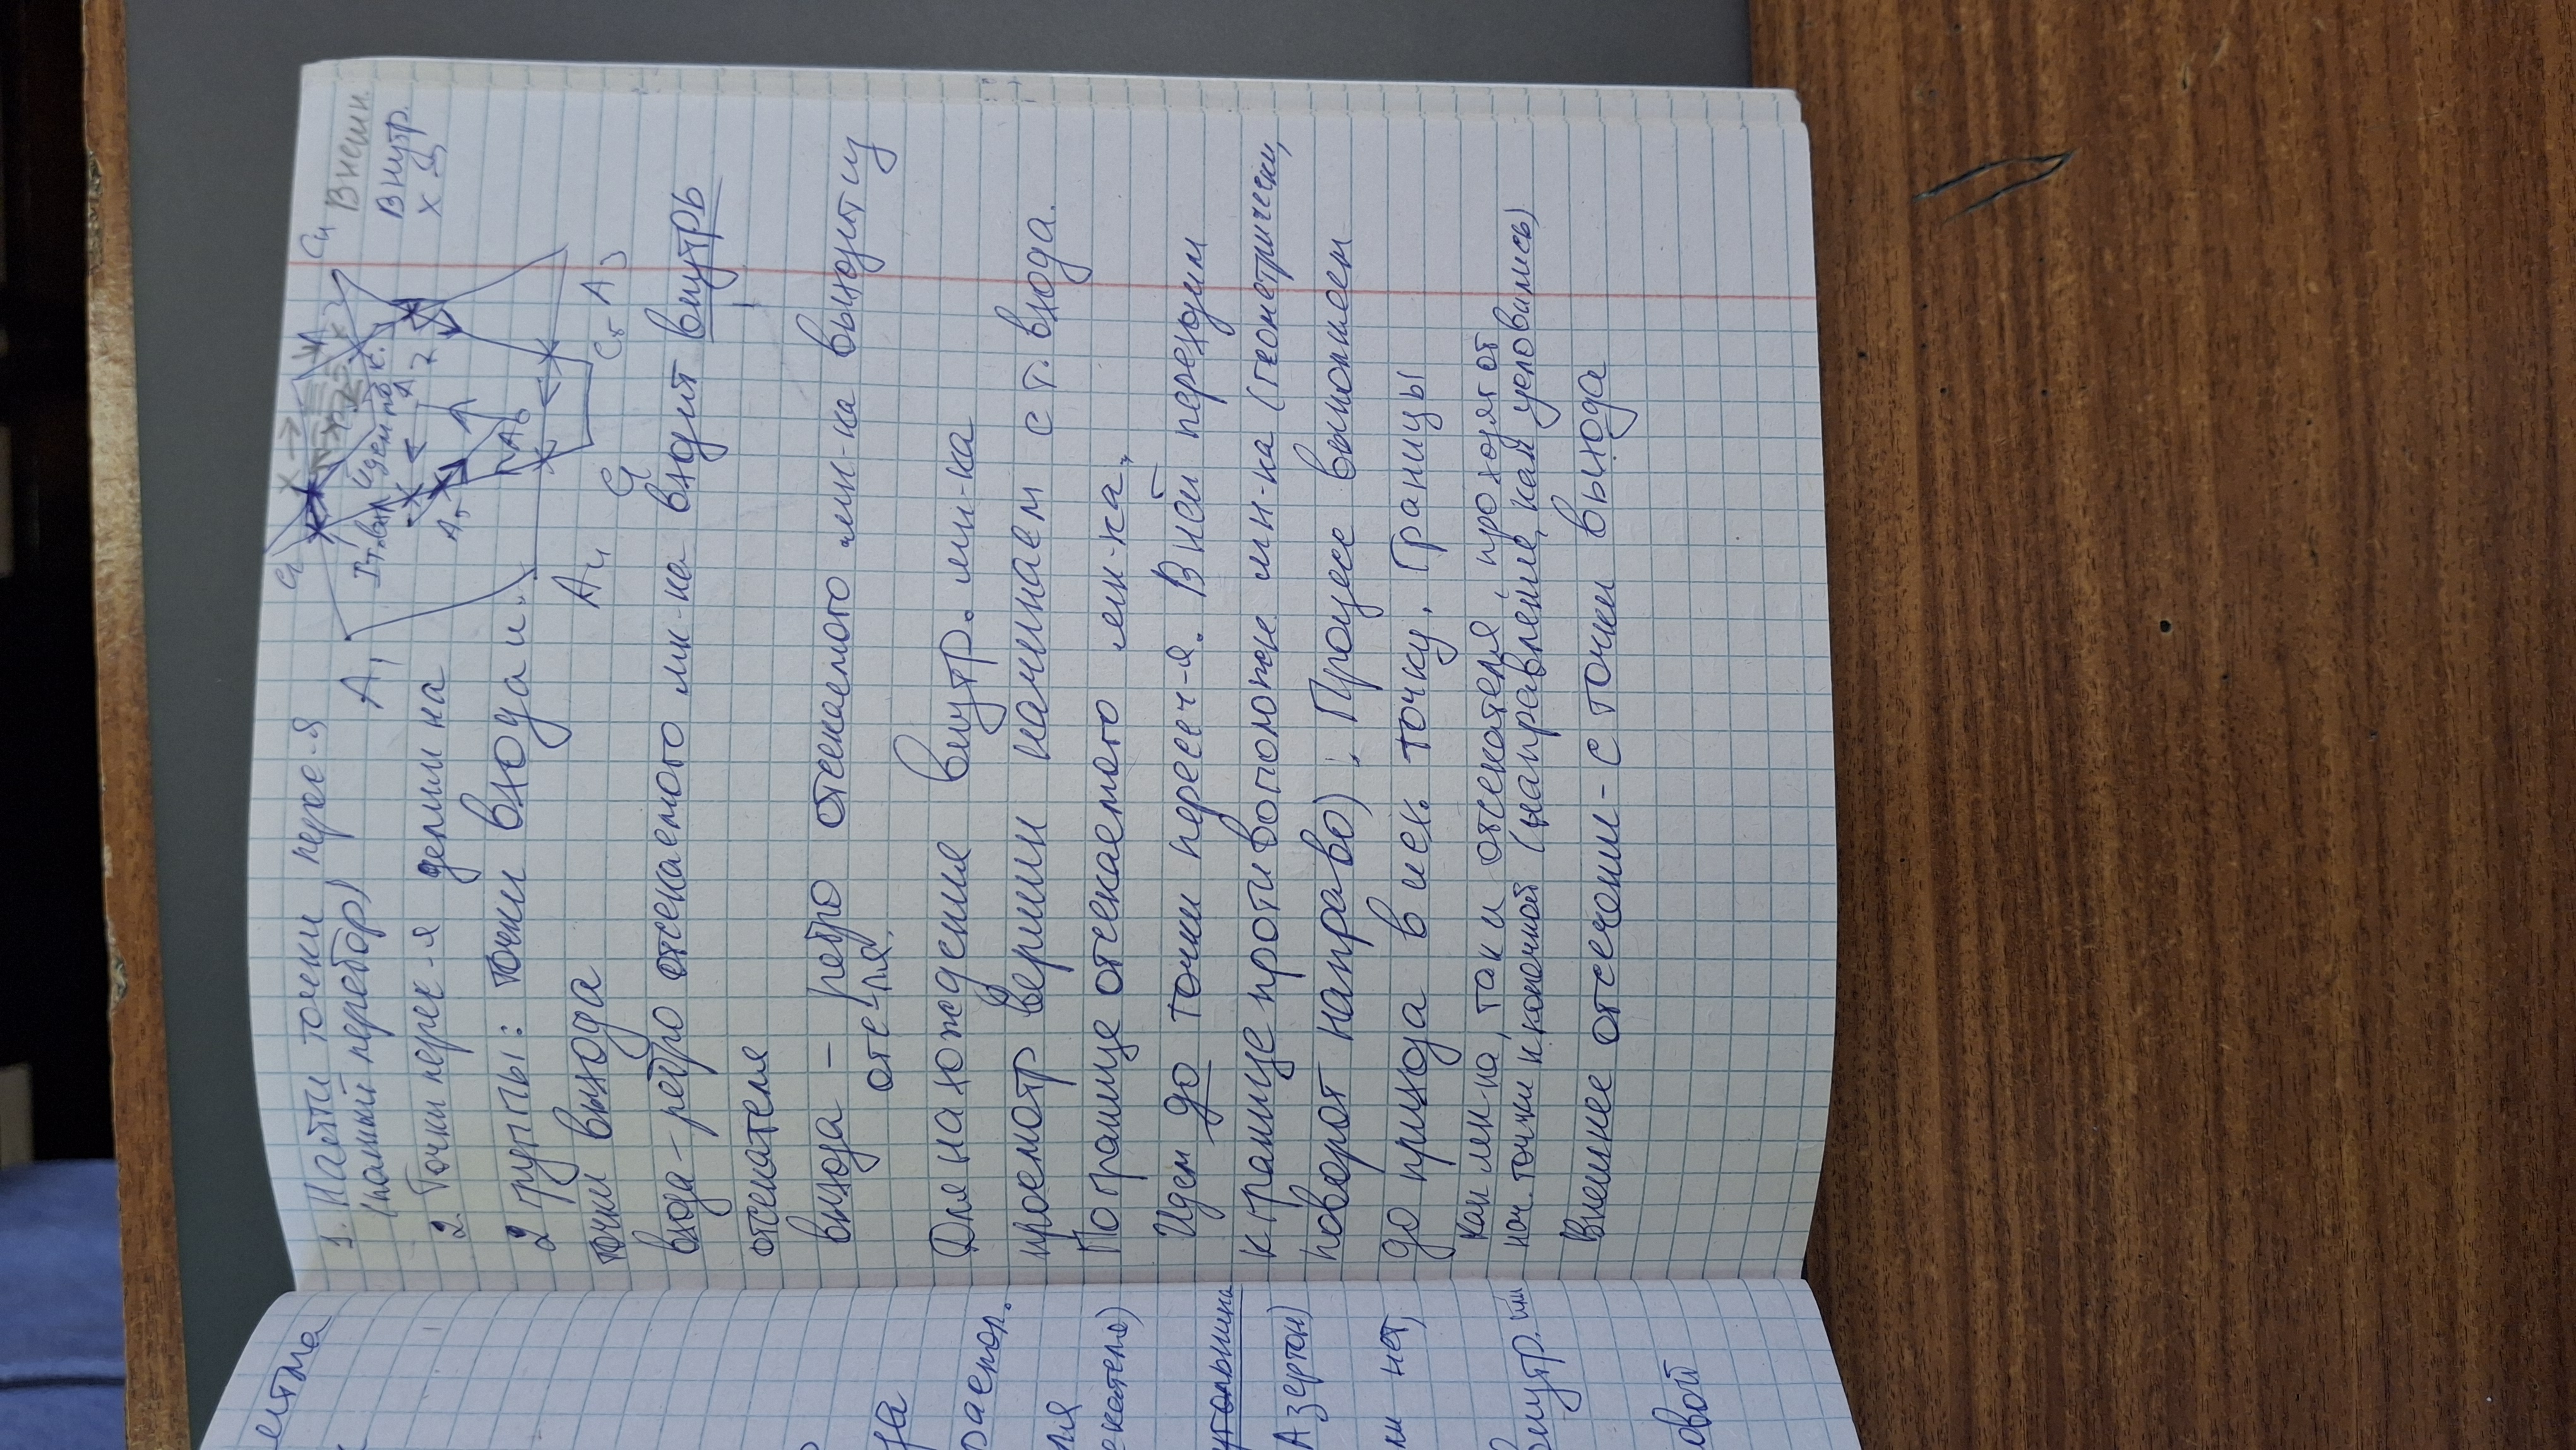 итма
за
распол.
ля
екателя)
угольника
Азертон)
ли нет,
внутр. или
овой
1. Найти точки перес-я
(полный перебор)
2. Точки перес-я делим на
2 группы: точки входа и
точки выхода
входа – ребро отсекаемого мн-ка входит внутрь
отсекателя
выхода – ребро отсекаемого мн-ка выходит из
отс-ля.
Для нахождения внутр. мн-ка
просмотр вершин начинаем с т. входа.
По границе отсекаемого мн-ка.
Идем до точки пересеч-я. В ней переходим
к границе противоположн. мн-ка (геометрически,
поворот направо). Процесс выполняем
до прихода в исх. точку. Границы
как мн-ка, так и отсекателя, проходят от
нач. точки к конечной (направление, как условились)
Внешнее отсечение – с точки выхода
A1
C4
Внешн.
Внутр.
X →
Идем по
A5
A6
A4
C5 A3